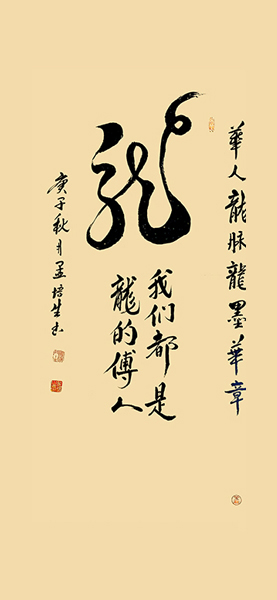 華人龍脉龍墨華章
龍
我们都是
龍的傳人
庚子秋月孟培生书